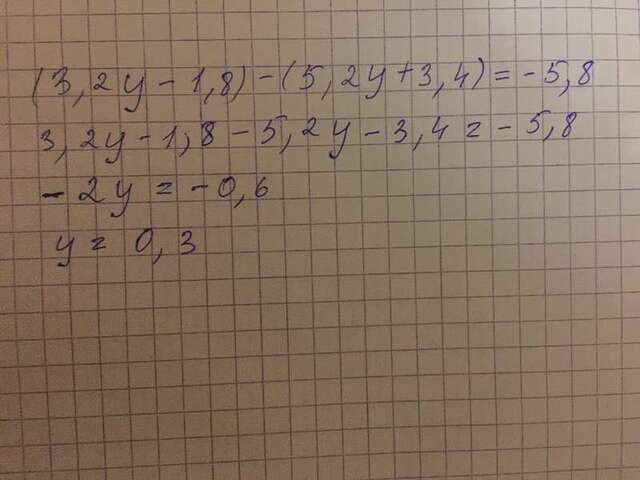 (3,2y-1,8)-(5,2y+3,4)=-5,8
3,2y-1,8-5,2y-3,4=-5,8
-2y=-0,6
y=0,3